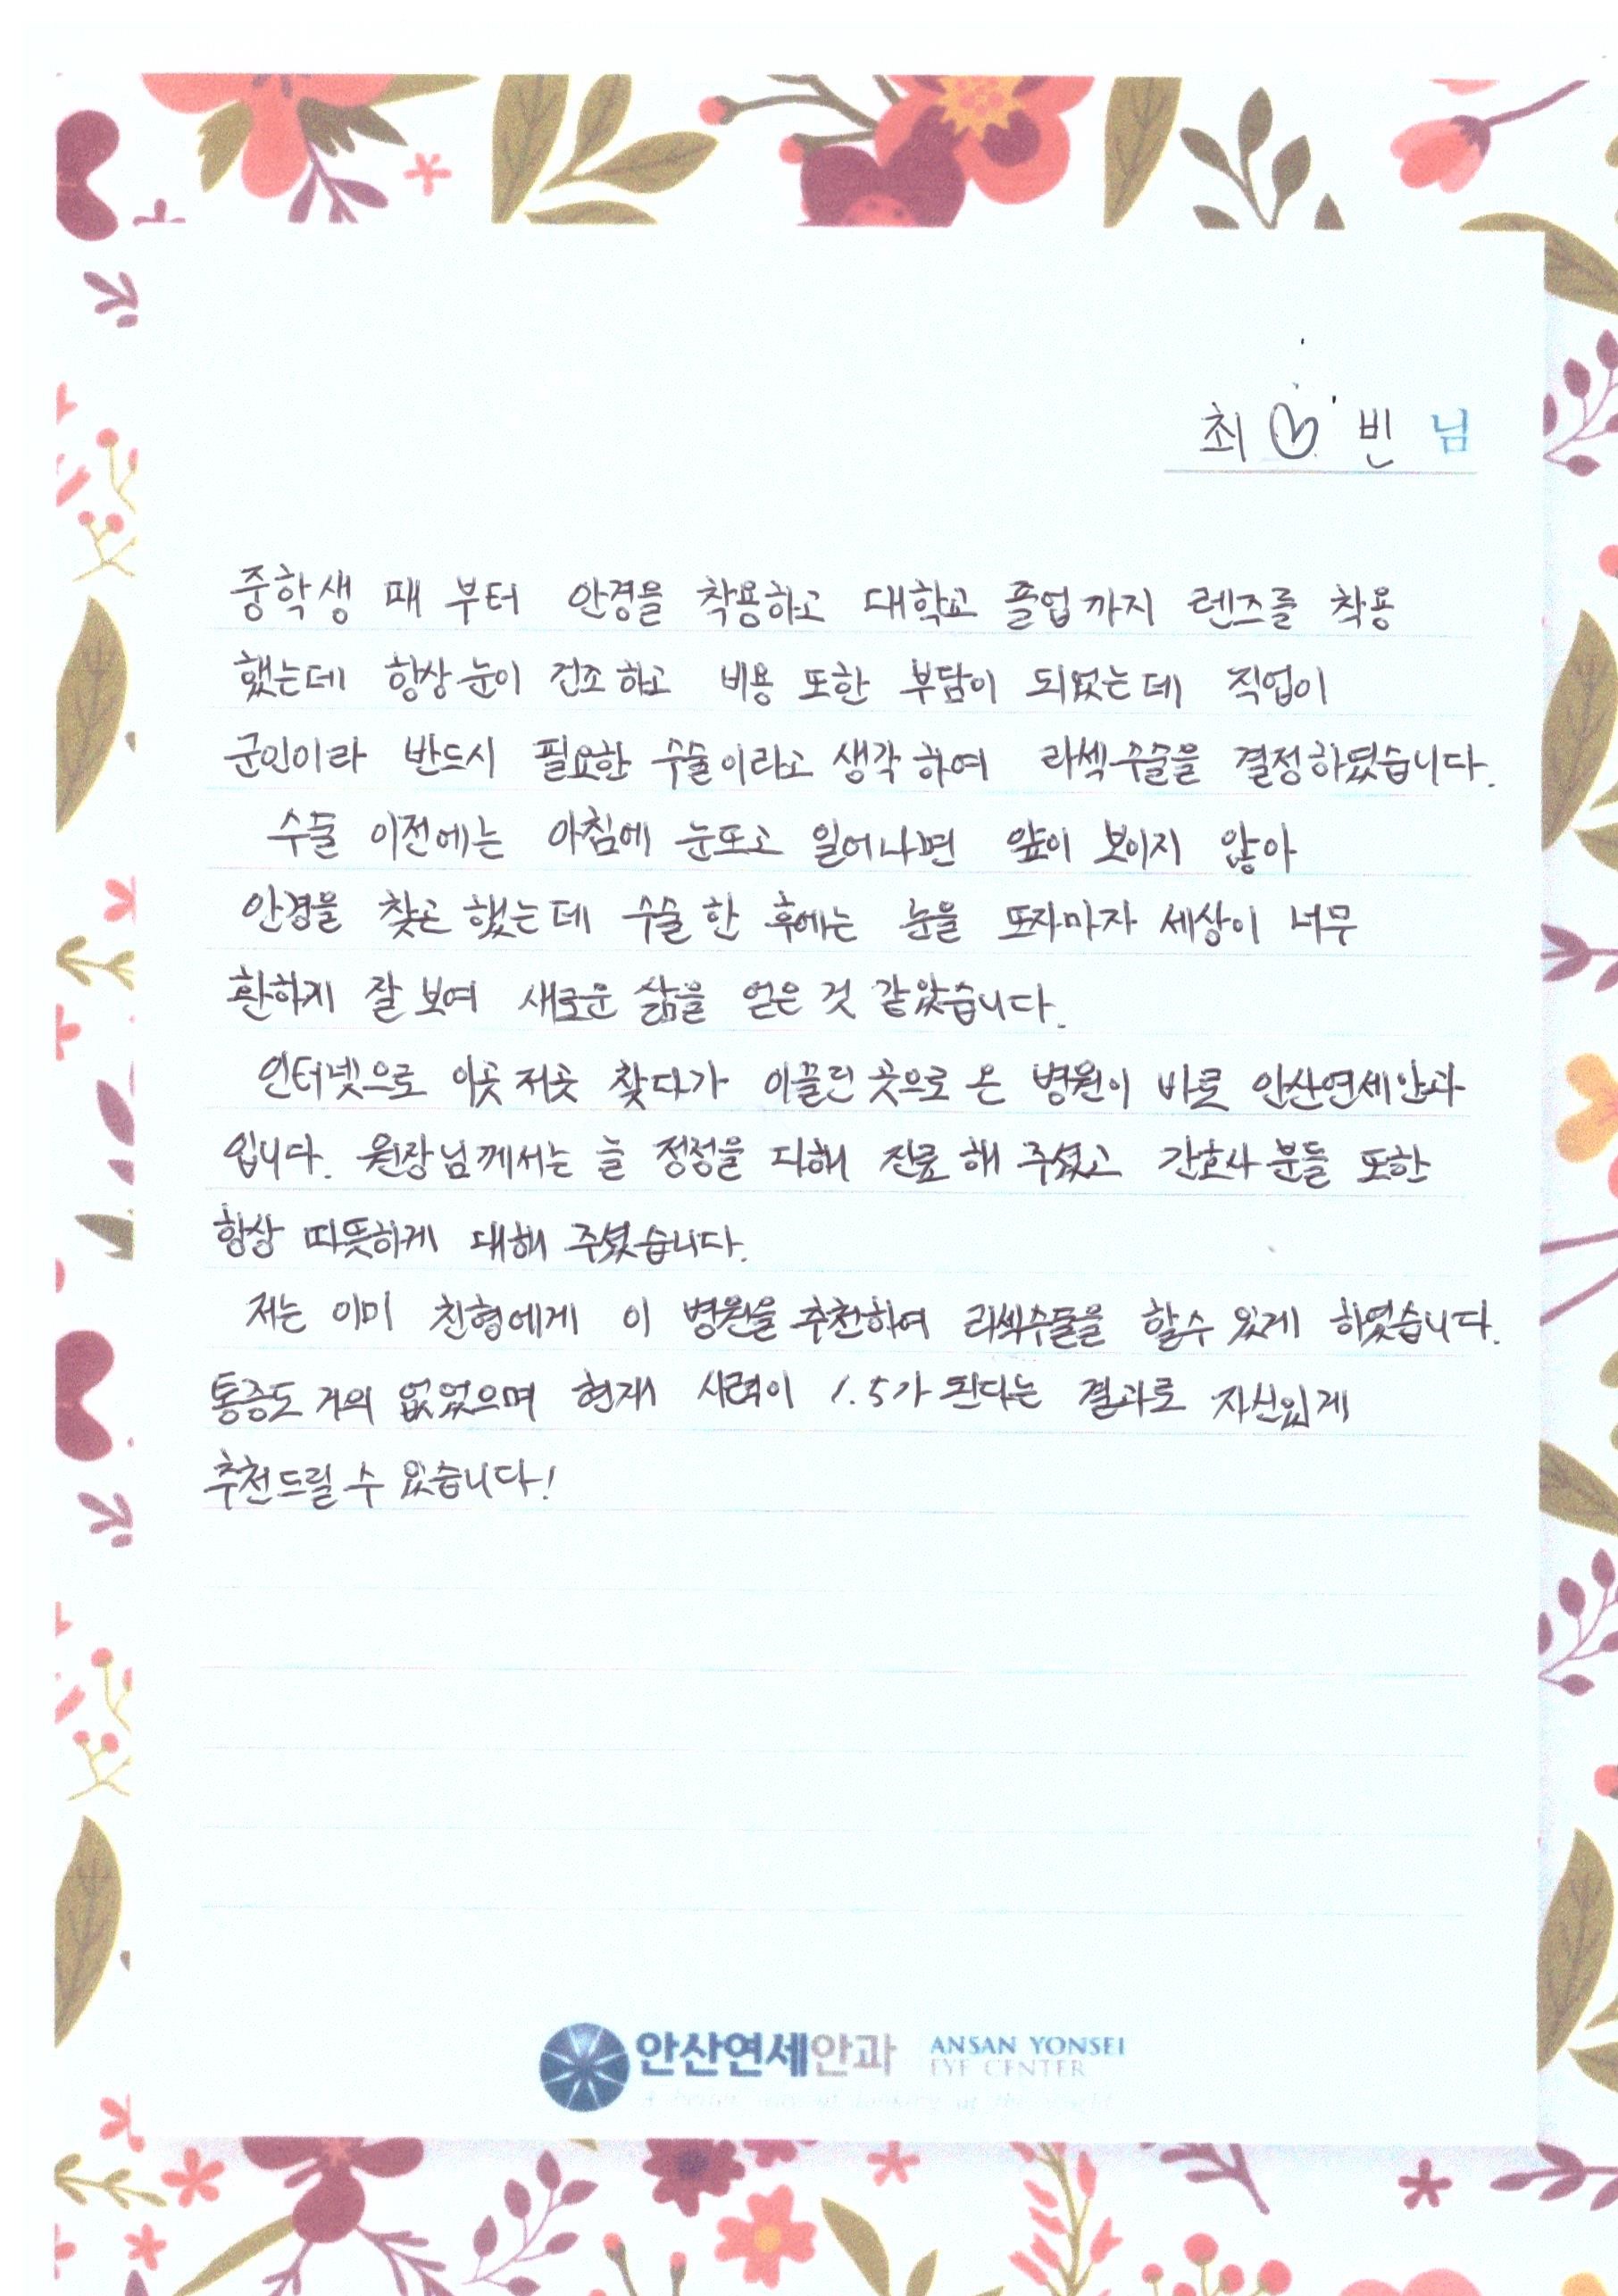 최♡빈 님
중학생 때 부터 안경을 착용하고 대학교 졸업까지 렌즈를 착용
했는데 항상 눈이 건조하고 비용 또한 부담이 되었는데 직업이
군인이라 반드시 필요한 수술이라고 생각하여 라섹수술을 결정하였습니다.
수술 이전에는 아침에 눈뜨고 일어나면 앞이 보이지 않아
안경을 찾곤 했는데 수술 한 후에는 눈을 뜨자마자 세상이 너무
환하게 잘 보여 새로운 삶을 얻은 것 같았습니다.
인터넷으로 이곳저곳 찾다가 이끌린 곳으로 온 병원이 바로 안산연세안과
입니다. 원장님께서는 늘 정성을 다해 진료 해 주셨고 간호사 분들 또한
항상 따뜻하게 대해 주셨습니다.
저는 이미 친형에게 이 병원을 추천하여 라섹수술을 할수 있게 하였습니다.
통증도 거의 없었으며 현재 시력이 1.5가 된다는 결과로 자신있게
추천드릴 수 있습니다!
안산연세안과 ANSAN YONSEI
EYE CENTER